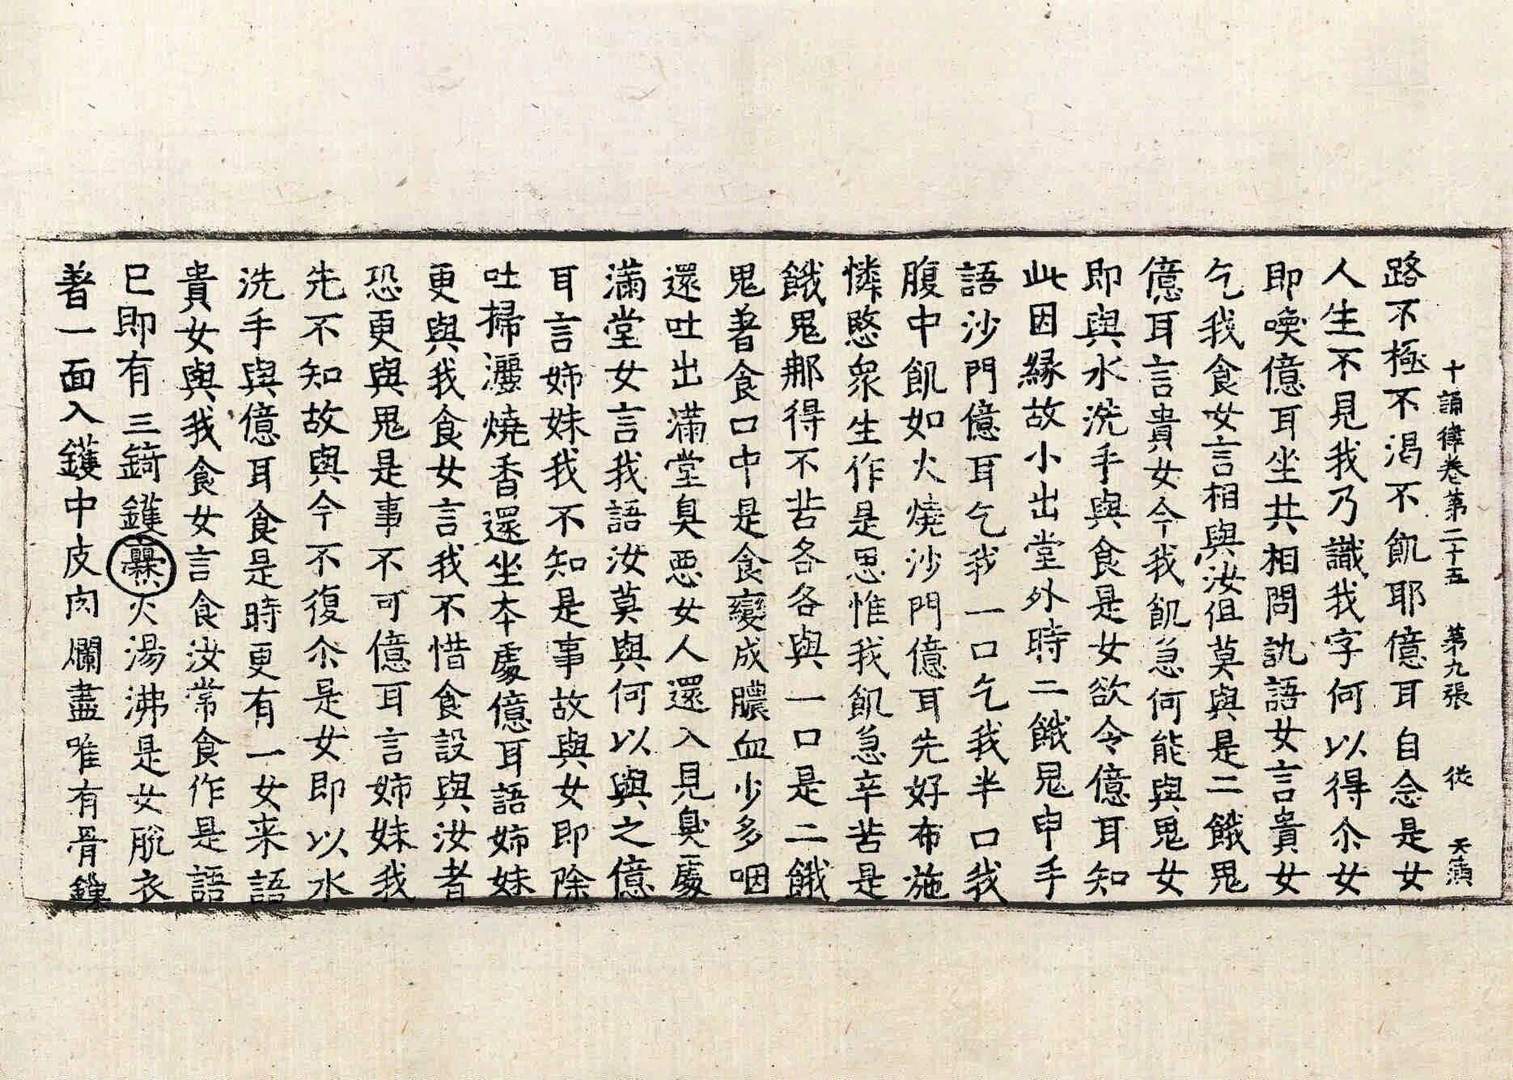 十誦律卷第二十五 第九張 従 天演
路不極不渴不飢耶億耳自念是女
人生不見我乃識我字何以得尒女
即喚億耳坐共相問訊語女言貴女
乞我食女言相與汝但莫與是二餓鬼
億耳言貴女今我飢急何能與鬼女
即與水洗手與食是女欲令億耳知
此因縁故小出堂外時二餓鬼申手
語沙門億耳乞我一口乞我半口我
腹中飢如火燒沙門億耳先好布施
憐愍衆生作是思惟我飢急辛苦是
餓鬼那得不苦各各與一口是二餓
鬼著食口中是食變成膿血少多咽
還吐出滿堂臭惡女人還入見臭處
滿堂女言我語汝莫與何以與之億
耳言姉妹我不知是事故與女即除
吐掃灑燒香還坐本處億耳語姉妹
更與我食女言我不惜食設與汝者
恐更與鬼是事不可億耳言姉妹我
先不知故與今不復尒是女即以水
洗手與億耳食是時更有一女来語
貴女與我食女言食汝常食作是語
已即有三錡鑊爨火湯沸是女脫衣
著一面入鑊中皮肉爛盡唯有骨鏁